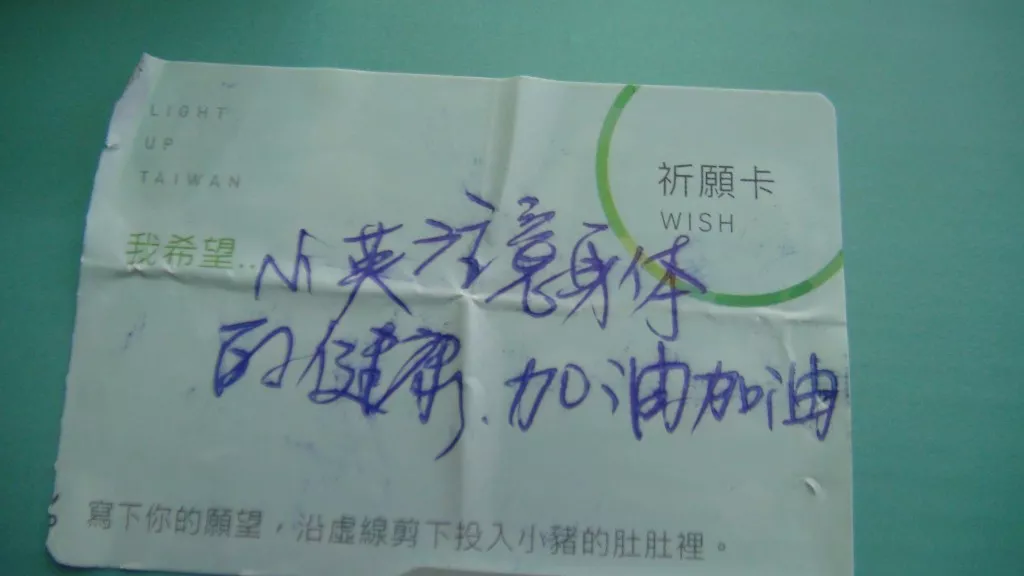 LIGHT
UP
TAIWAN
祈願卡
WISH
我希望...
小英注意身体
的健康、加油加油
寫下你的願望，沿虛線剪下投入小豬的肚肚裡。